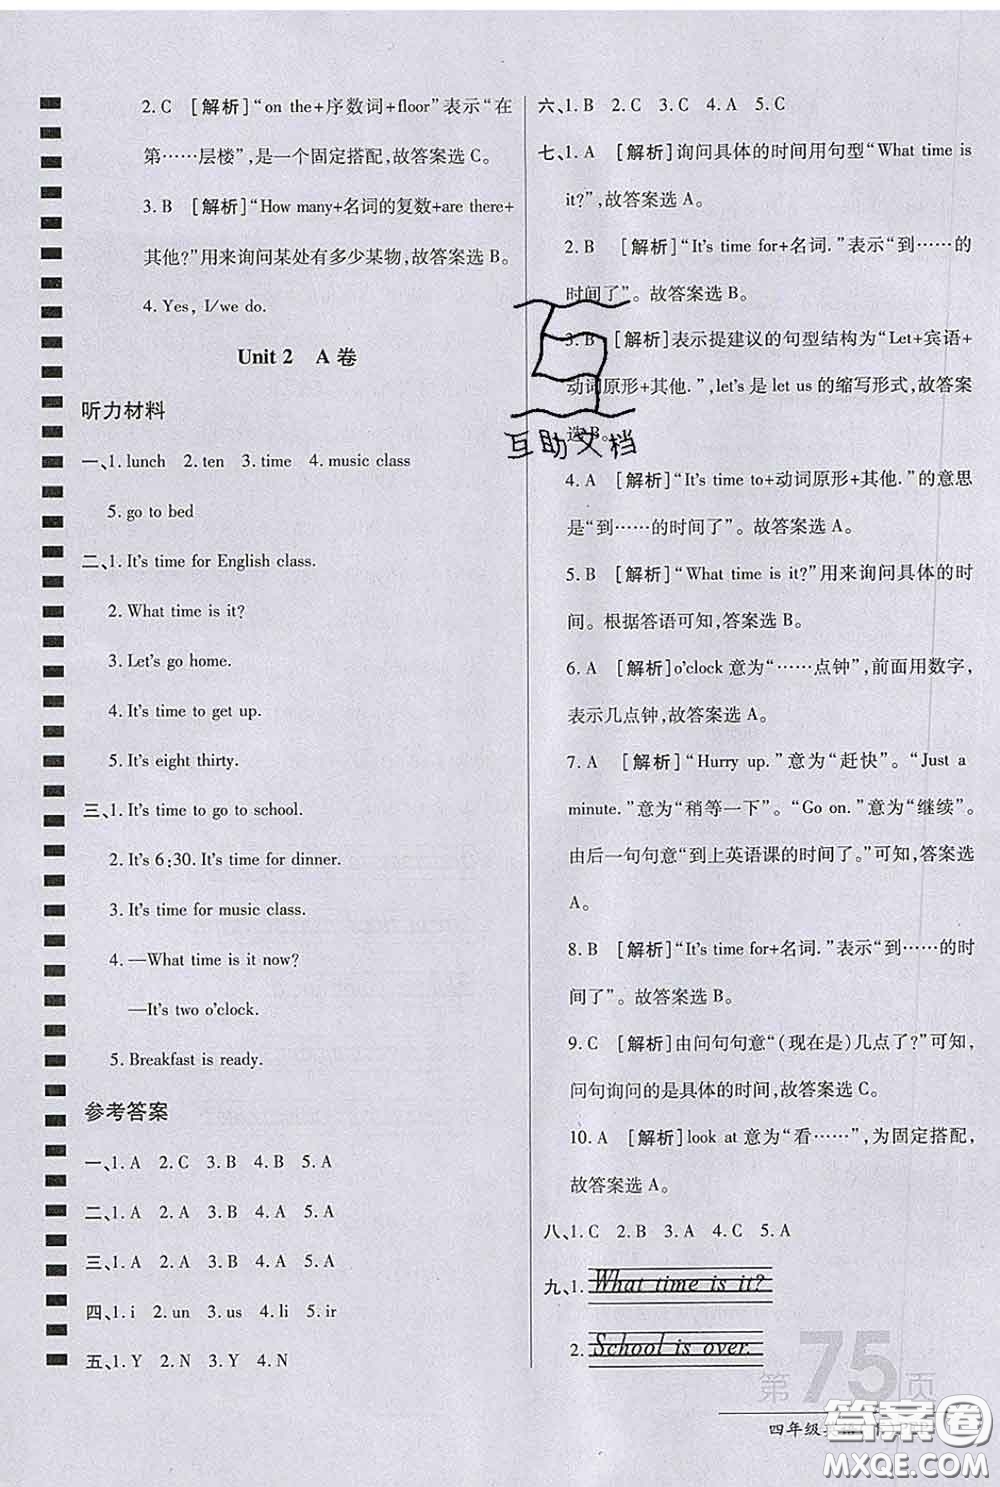 2. C [解析]“on the+序数词+floor”表示“在
第……层楼”,是一个固定搭配,故答案选C。
3. B [解析]“How many+名词的复数+are there+
其他?”用来询问某处有多少某物,故答案选B。
4. Yes, I/we do.
Unit 2 A 卷
听力材料
一、1. lunch 2. ten 3. time 4. music class
5. go to bed
二、1. It's time for English class.
2. What time is it?
3. Let's go home.
4. It's time to get up.
5. It's eight thirty.
三、1. It's time to go to school.
2. It's 6:30. It's time for dinner.
3. It's time for music class.
4. —What time is it now?
—It's two o'clock.
5. Breakfast is ready.
参考答案
一、1. A 2. C 3. B 4. B 5. A
二、1. A 2. A 3. B 4. A 5. A
三、1. A 2. A 3. B 4. A 5. A
四、1. i 2. un 3. us 4. li 5. ir
五、1. Y 2. N 3. Y 4. N 5. N
六、1. B 2. C 3. C 4. A 5. C
七、1. A [解析]询问具体的时间用句型“What time is
it?”,故答案选A。
2. B [解析]“It's time for+名词.”表示“到……的
时间了”。故答案选B。
3. B [解析]表示提建议的句型结构为“Let+宾语+
动词原形+其他.”,let's是let us的缩写形式,故答案
选B。
互助文档
4. A [解析]“It's time to+动词原形+其他.”的意思
是“到……的时间了”。故答案选A。
5. B [解析]“What time is it?”用来询问具体的时
间。根据答语可知,答案选B。
6. A [解析]o'clock意为“……点钟”,前面用数字,
表示几点钟,故答案选A。
7. A [解析]“Hurry up.”意为“赶快”。“Just a
minute.”意为“稍等一下”。“Go on.”意为“继续”。
由后一句句意“到上英语课的时间了。”可知,答案选
A。
8. B [解析]“It's time for+名词.”表示“到……的时
间了”。故答案选B。
9. C [解析]由问句句意“(现在是)几点了?”可知,
问句询问的是具体的时间,故答案选C。
10. A [解析]look at意为“看……”,为固定搭配,
故答案选A。
八、1. C 2. B 3. A 4. C 5. A
九、1. What time is it?
2. School is over.
第75页
四年级
答案圈
MXQE.COM